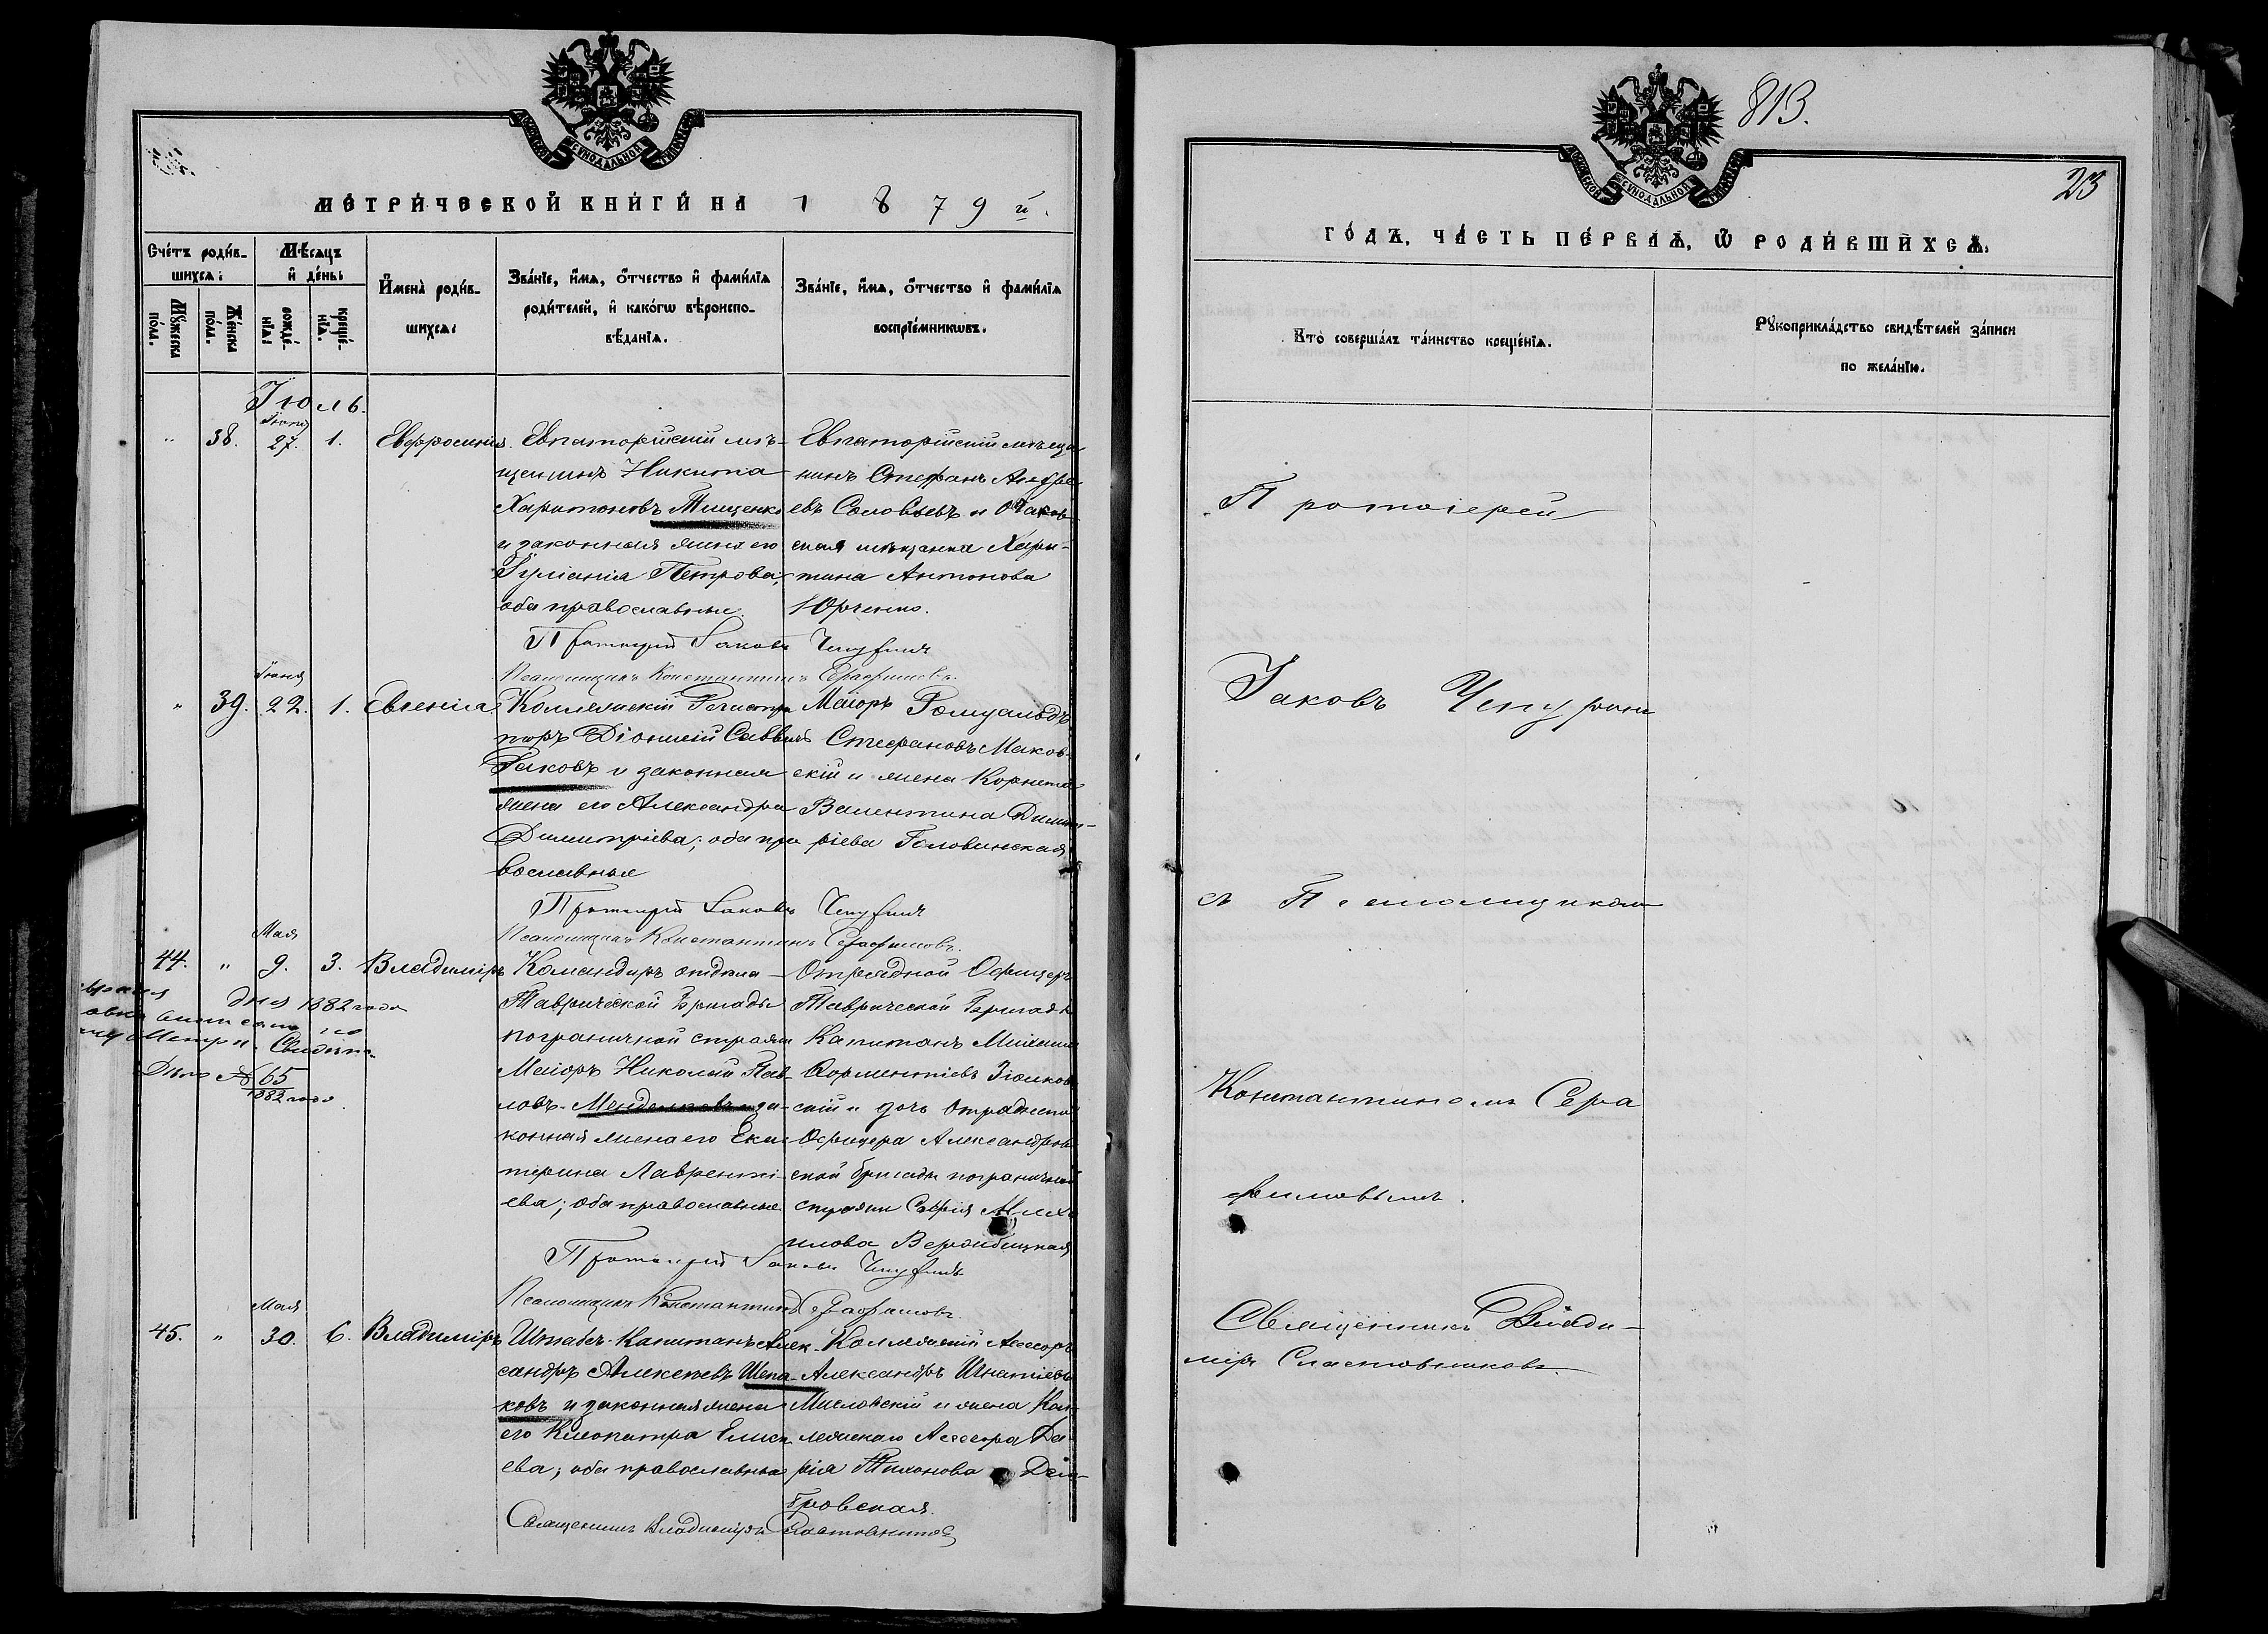 МЕТРИЧЕСКОЙ КНИГИ НА 1879 й.
Счетъ родив-
шихся:
Мужеска
пола.
Женска
пола.
Мѣсяцъ
и день:
рожде-
нїя:
крещé-
нїя.
Имена родив-
шихся:
Званїе, имя, отчество и фамилїя
родителей, и какогѡ вѣроиспо-
вѣданїя.
Званїе, имя, отчество и фамилїя
воспрїемникѡвъ.
Іюль.
Іюня
38. 27. 1. Евфросинія
Евпаторійскій мѣ-
щанинъ Никита
Харитоновъ Тищенко
и законная жена его
Іуліанія Петрова,
оба православные
Евпаторійскій мѣща
нинъ Стефанъ Андре
евъ Соловьевъ и Очаков
ская мѣщанка Хари-
тина Антонова
Юрченко.
Протоіерей Іаковъ Чепуринъ
Псаломщикъ Константинъ Серафимовъ.
Іюня
" 39. 22. 1. Евгенія.
Коллежскій Регистра
торъ Діонисій Саввичъ
Гаковъ и законная
жена его Александра
Димитріева; оба пра
вославные
Маіоръ Ромуальдъ
Стефановъ Маков-
скій и жена Корнета
Валентина Димит-
ріева Головинская
Протоіерей Іаковъ Чепуринъ
Псаломщикъ Константинъ Серафимовъ.
Мая
44. " 9. 3. Владиміръ
дня 1882 года
Метрич. Свидѣт.
№ 65
1882 года.
Командиръ отдѣла
Таврической бригады
пограничной стражи
Маіоръ Николай Пав-
ловъ и за-
конная жена его Ека-
терина Лавренті-
ева; оба православные
Отрядной Офицеръ
Таврической бригады
Капитанъ Михаилъ
скій и дочь Отряднаго
Офицера Александров
ской бригады пограничной
стражи Софія Миха
илова Вержбицкая
Протоіерей Іаковъ Чепуринъ
Псаломщикъ Константинъ Серафимовъ.
Мая
45. " 30. 6. Владиміръ
Штабсъ-Капитанъ Алек-
сандръ Алексѣевъ Шепа-
ковъ и законная жена
его Клеопатра Елисѣ
ева; оба православные
Коллежскій Ассесоръ
Александръ Игнатіевъ
Мисловскій и жена Кол-
лежскаго Ассесора Да-
рія Тихонова Дом-
бровская.
Священникъ Владиміръ Сластовниковъ
813.
23
ГОДЪ, ЧАСТЬ ПЕРВАЯ, Ѡ РОДИВШИХСЯ.
Кто совершалъ таинство крещенїя.
Рукоприкладство свидѣтелей записи
по желанїю.
Протоіерей
Іаковъ Чепуринъ
съ Псаломщикомъ
Константиномъ Сера
фимовымъ.
Священникъ Влади-
міръ Сластовниковъ.